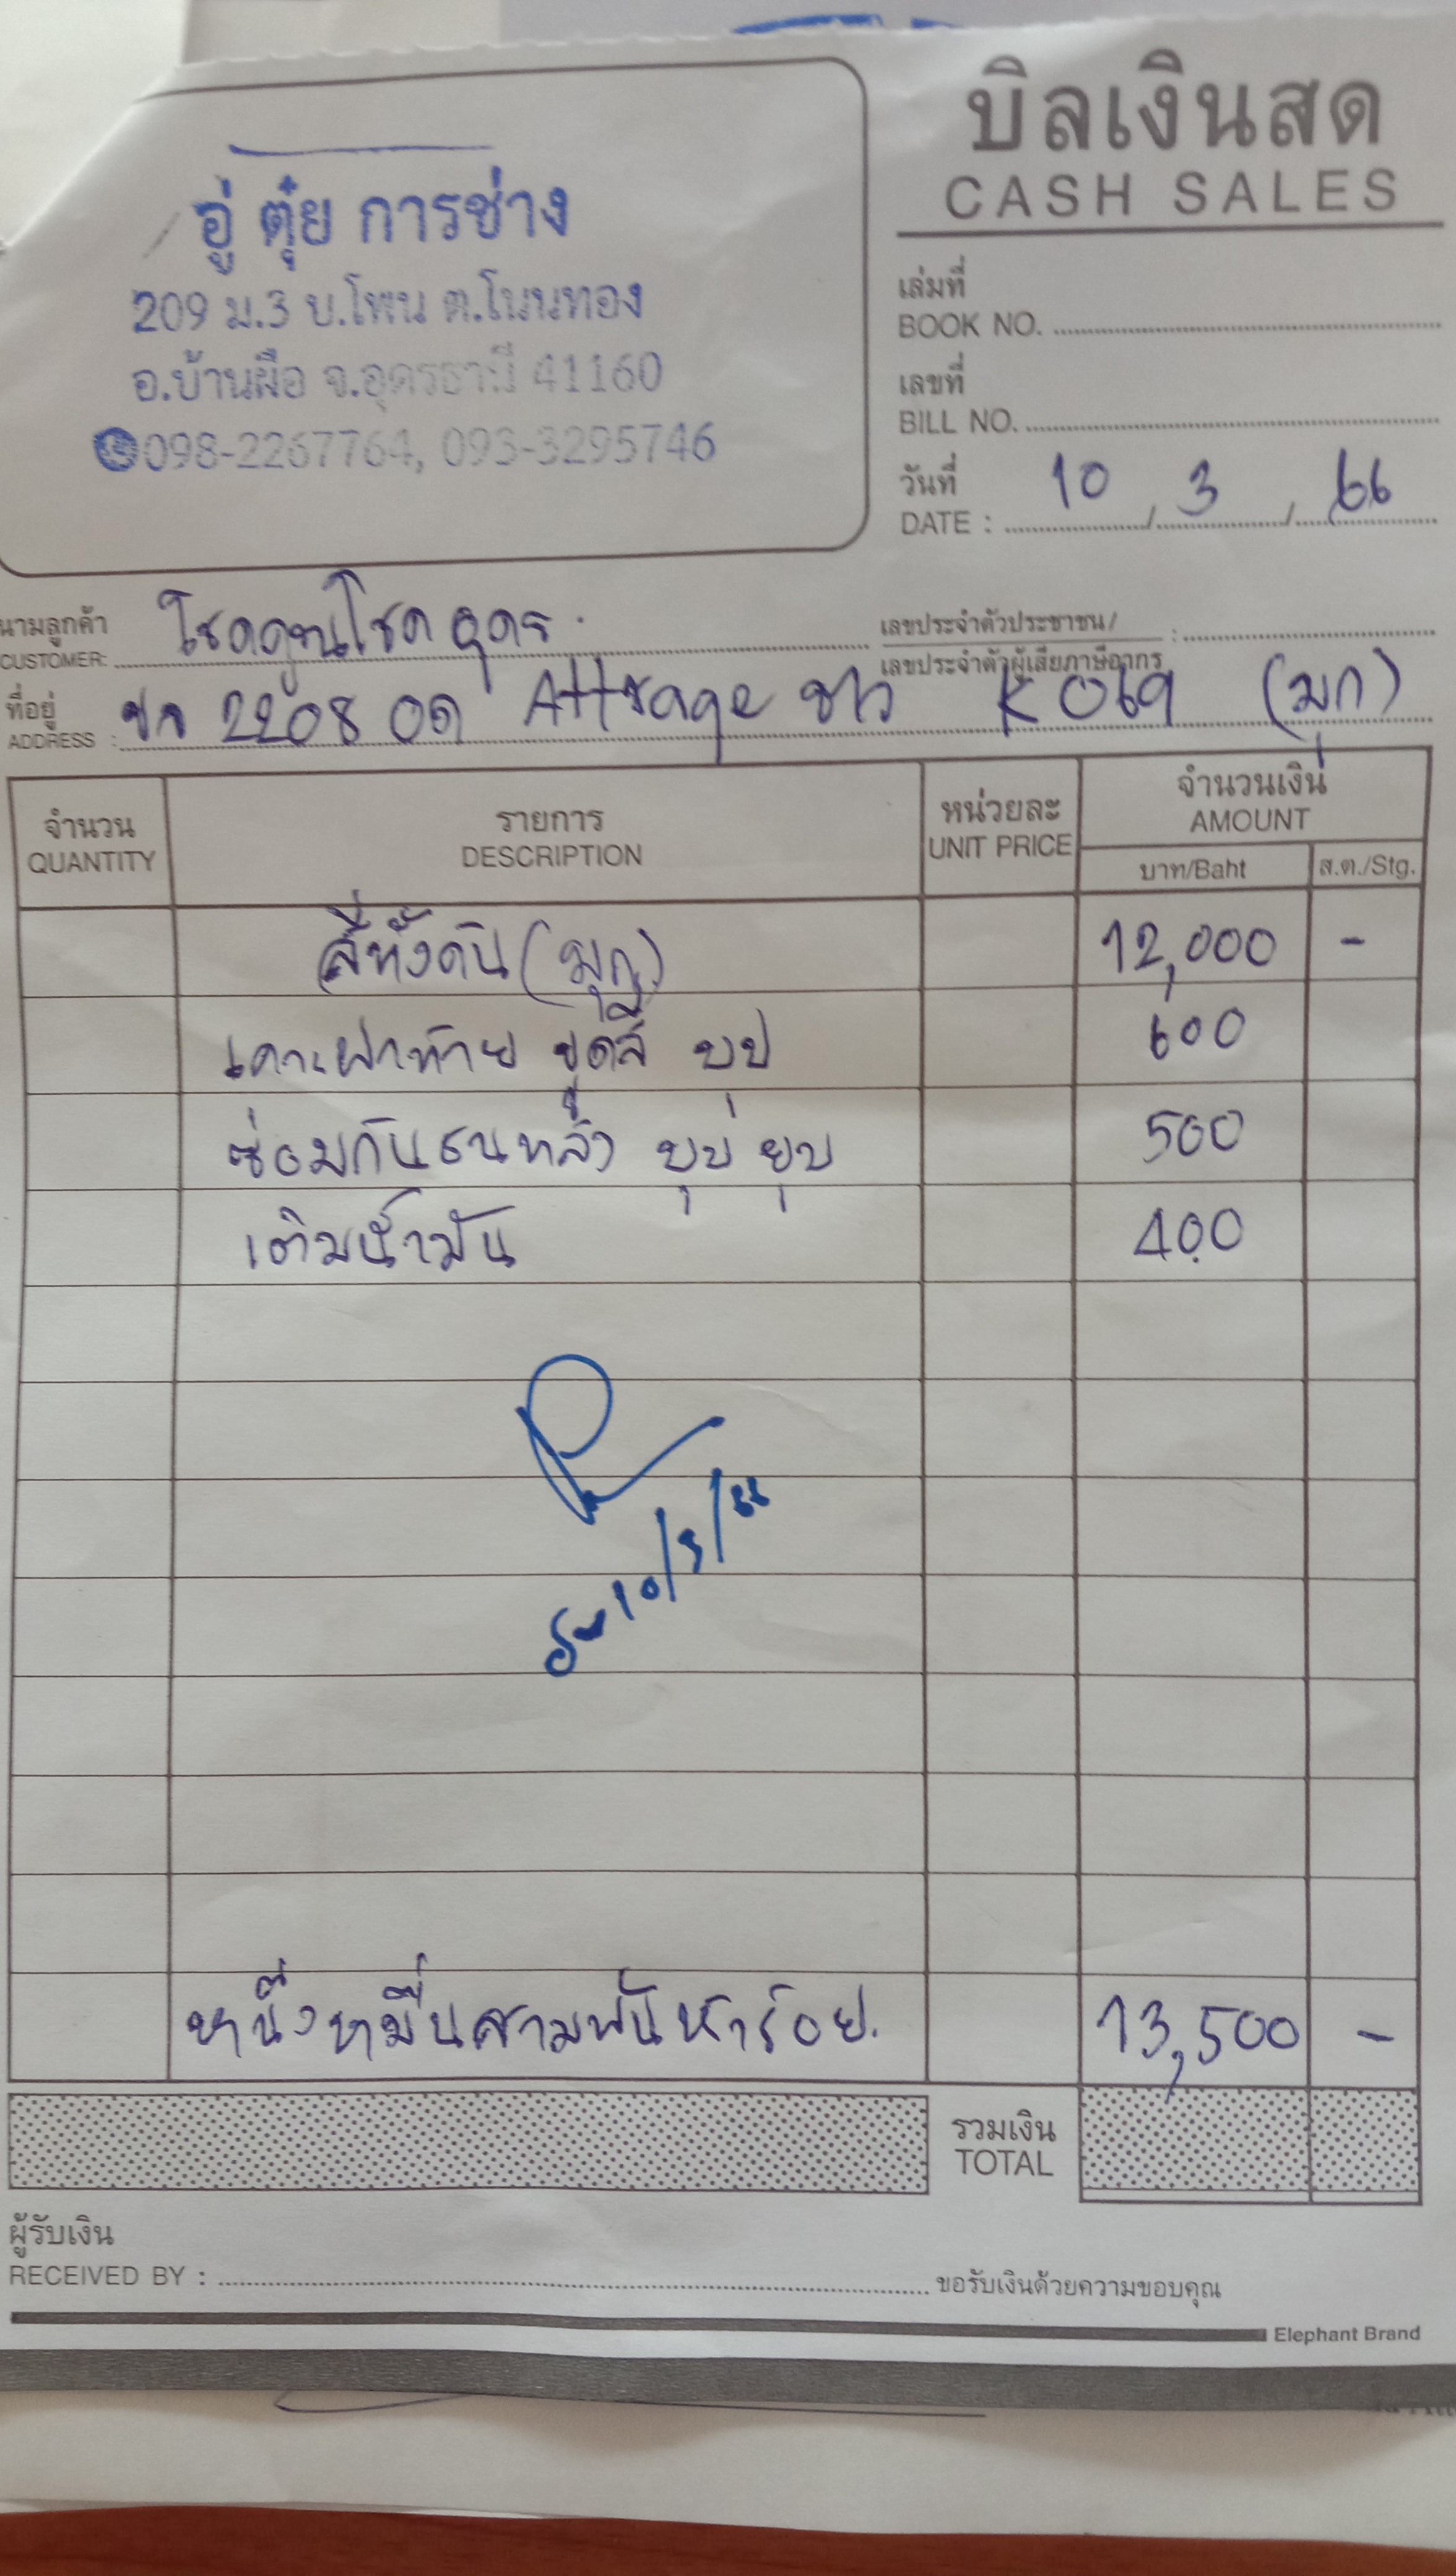 บิลเงินสด
CASH SALES
อู่ ตุ๋ย การช่าง
209 ม.3 บ.โพน ต.โนนทอง
อ.บ้านผือ จ.อุดรธานี 41160
098-2267764, 093-3295746
เล่มที่
BOOK NO.
เลขที่
BILL NO.
วันที่
DATE : 10 / 3 / 66
นามลูกค้า
CUSTOMER: โชคคูณโชค อุดร.
เลขประจำตัวประชาชน/
เลขประจำตัวผู้เสียภาษีอากร :
ที่อยู่
ADDRESS : 2208 Attrage ขาว K069 (มุก)
จำนวน
QUANTITY
รายการ
DESCRIPTION
หน่วยละ
UNIT PRICE
จำนวนเงิน
AMOUNT
บาท/Baht ส.ต./Stg.
สีทั้งคัน (มุก) 12,000 -
เคาะฝาท้าย ขูดสี บุบ 600
ซ่อมกันชนหลัง บุบ ยุบ 500
เติมน้ำมัน 400
10/3/66
หนึ่งหมื่นสามพันห้าร้อย. 13,500 -
รวมเงิน
TOTAL
ผู้รับเงิน
RECEIVED BY : ขอรับเงินด้วยความขอบคุณ
Elephant Brand